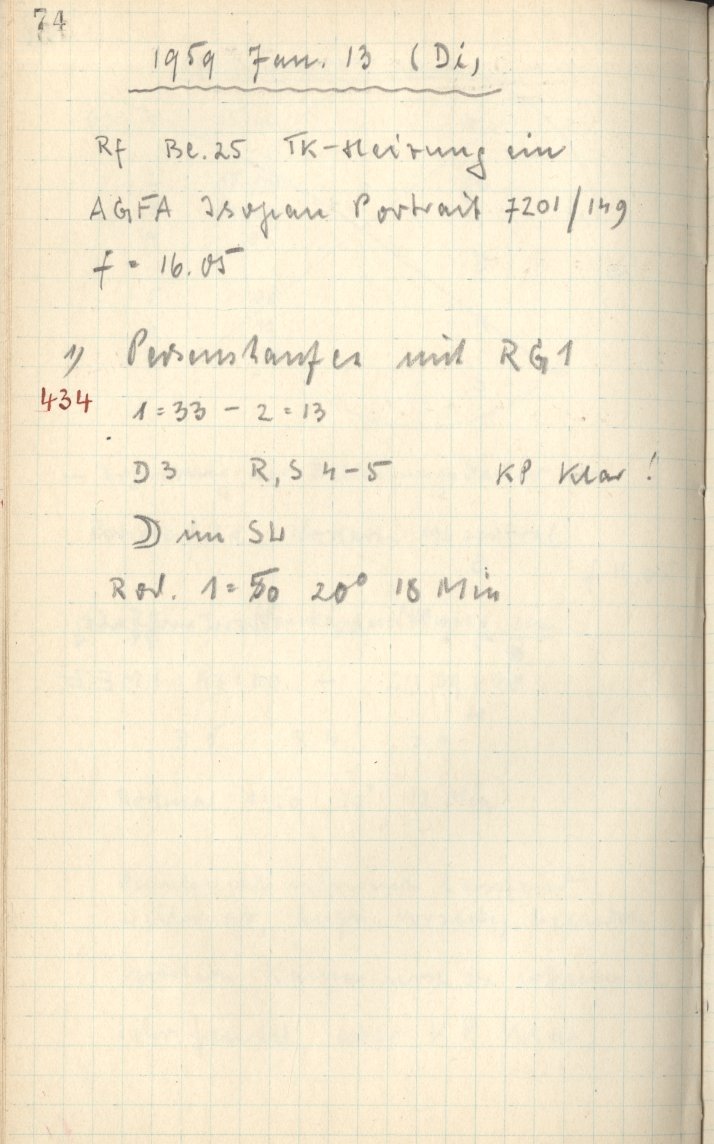 74
1959 Jan. 13 (Di)
Rf Be. 25 TK-Heizung ein
AGFA Isopan Portrait 7201/149
f = 16.05
1) Perseushaufen mit RG1
434
1=33 - 2=13
D3 R, S 4-5 KP Klar!
☽ im SW
Rod. 1=50 20° 18 Min